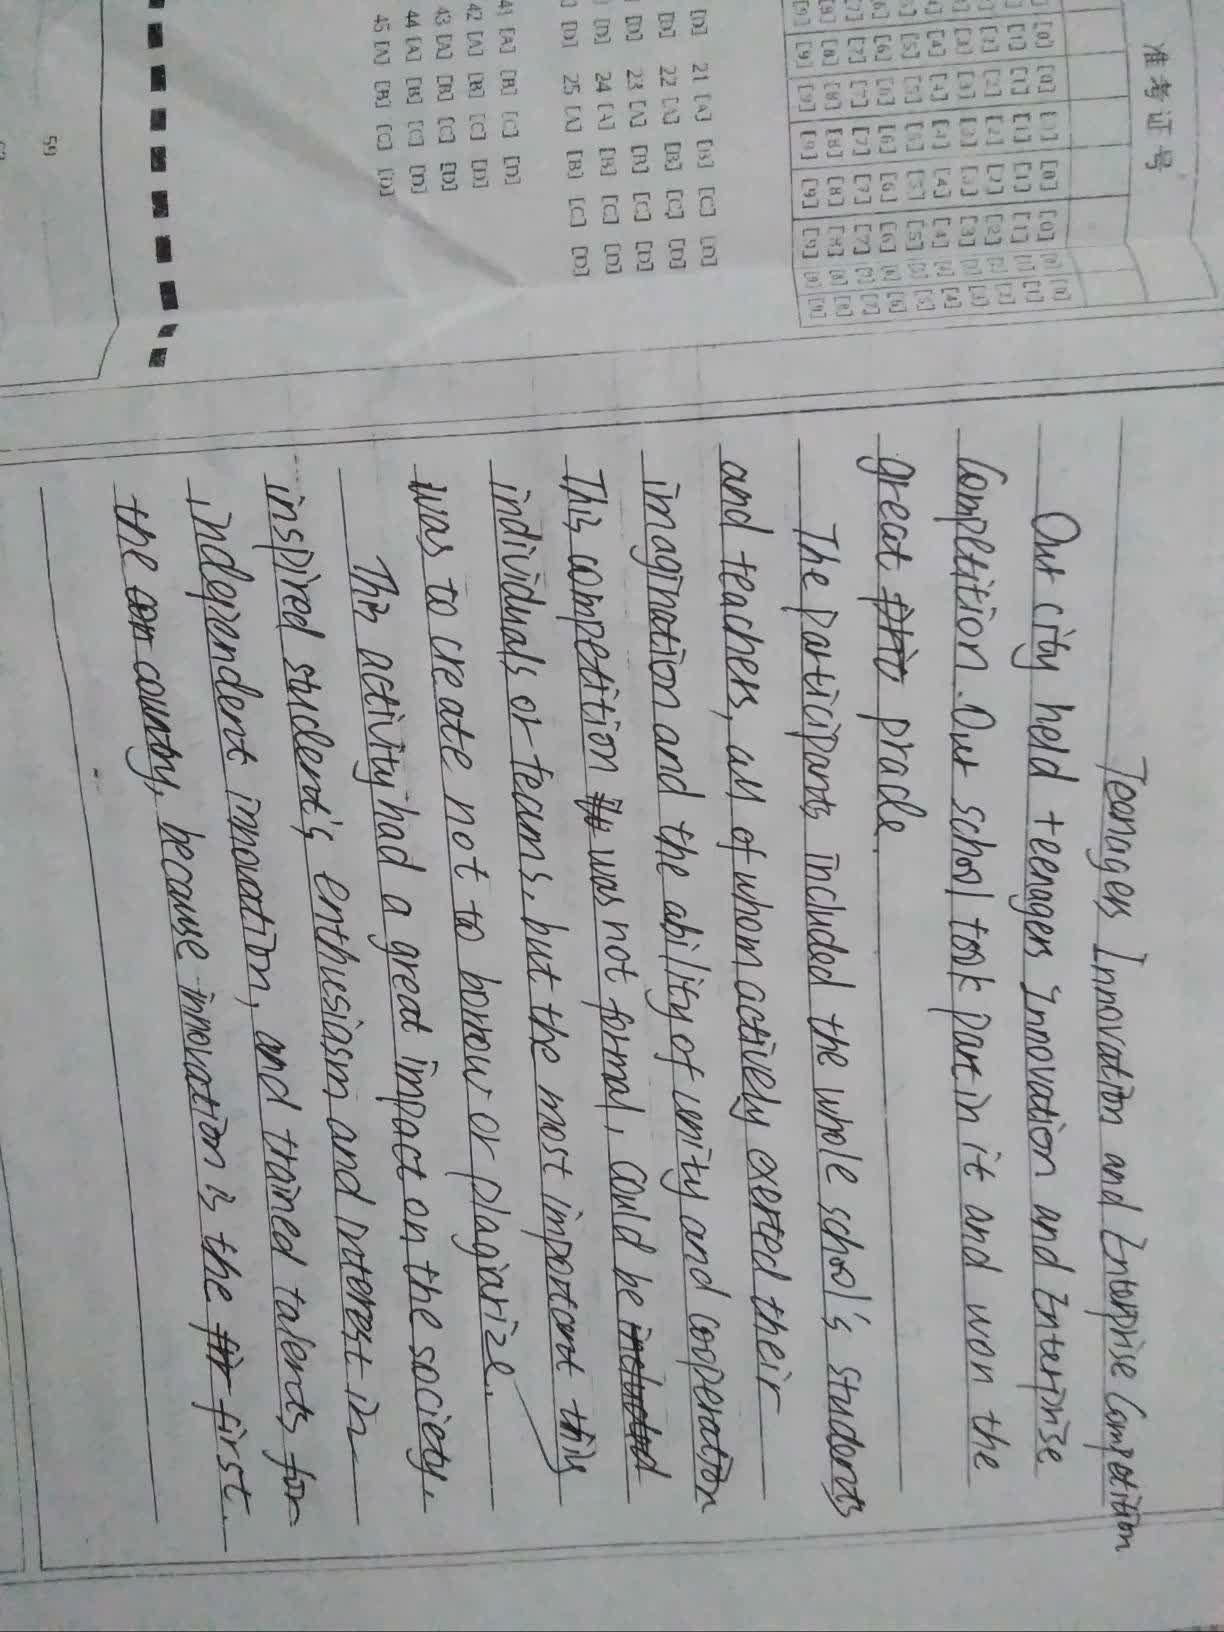 准考证号
[0] [1] [2] [3] [4] [5] [6] [7] [8] [9]
21 [A] [B] [C] [D]
22 [A] [B] [C] [D]
23 [A] [B] [C] [D]
24 [A] [B] [C] [D]
25 [A] [B] [C] [D]
41 [A] [B] [C] [D]
42 [A] [B] [C] [D]
43 [A] [B] [C] [D]
44 [A] [B] [C] [D]
45 [A] [B] [C] [D]
59
Teenagers Innovation and Enterprise Competition
Our city held teenagers Innovation and Enterprise
Competition. Our school took part in it and won the
great prade.
The participants included the whole school's students
and teachers, all of whom actively exerted their
imagination and the ability of unity and cooperation
This competition was not formal, could be
individuals or teams, but the most important thing
was to create not to borrow or plagiarize.
This activity had a great impact on the society.
inspired student's enthusiasm and interest in
independent innovation, and trained talents for
the country, because innovation is the first.